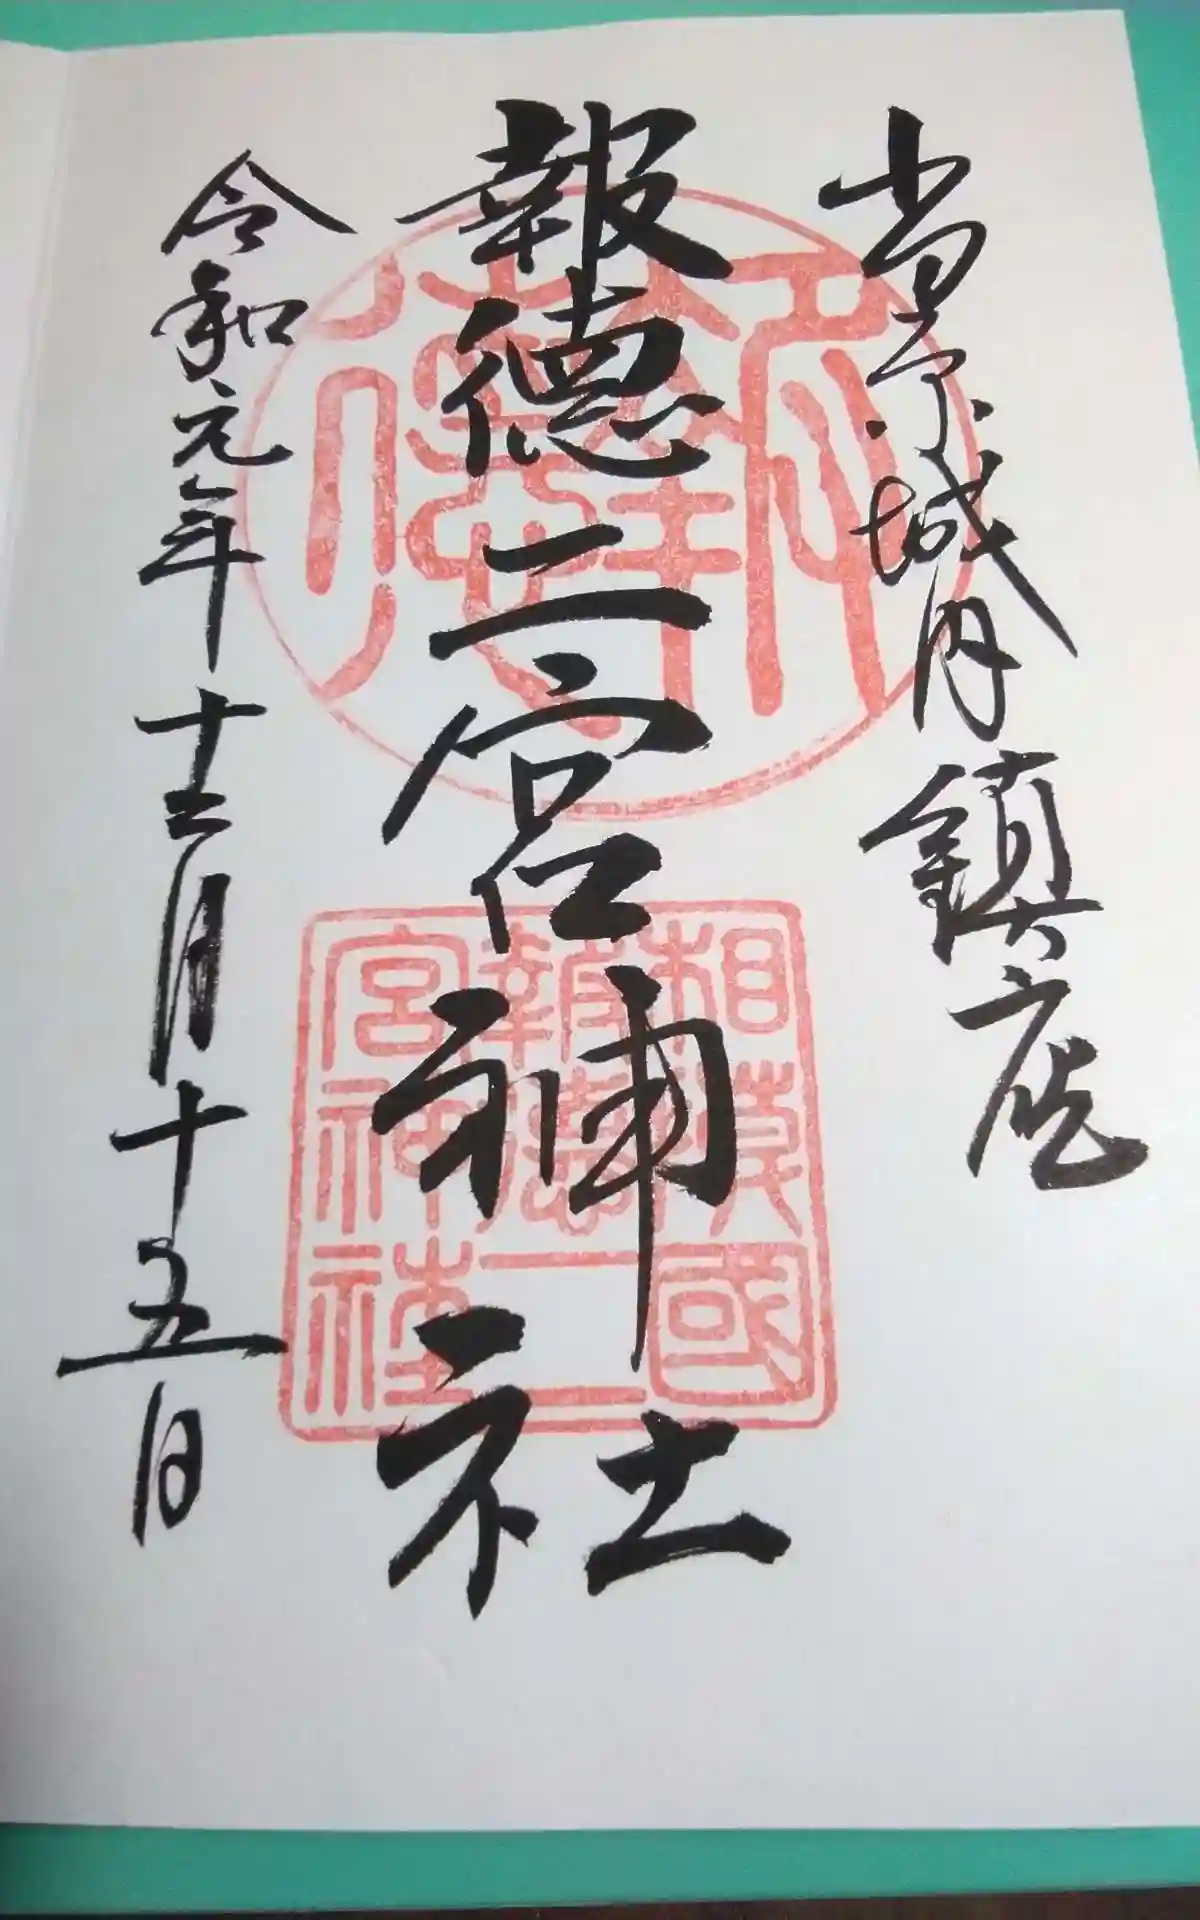 小田原城内鎮座
報徳二宮神社
令和元年十二月十五日
報徳
相模國
報徳二
宮神社